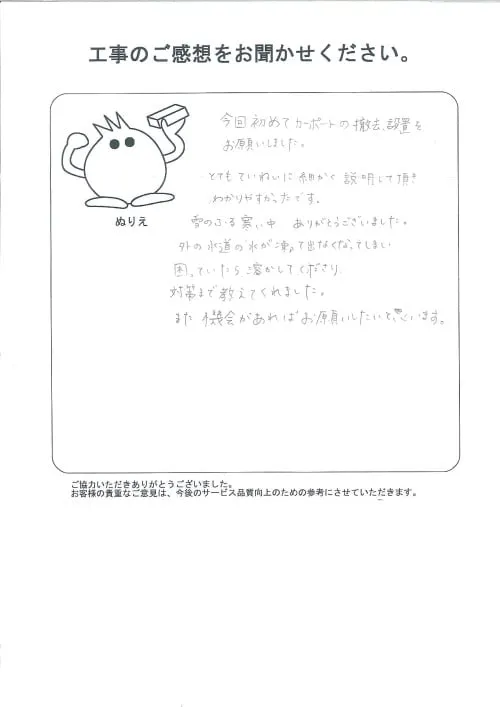 工事のご感想をお聞かせください。
今回初めてカーポートの撤去、設置を
お願いしました。
とてもていねいに細かく説明して頂き
わかりやすかったです。
ぬりえ
雪のふる寒い中 ありがとうございました。
外の水道の水が凍って出なくなってしまい
困っていたら溶かしてくださり
対策まで教えてくれました。
また機会があればお願いしたいと思います。
ご協力いただきありがとうございました。
お客様の貴重なご意見は、今後のサービス品質向上のための参考にさせていただきます。